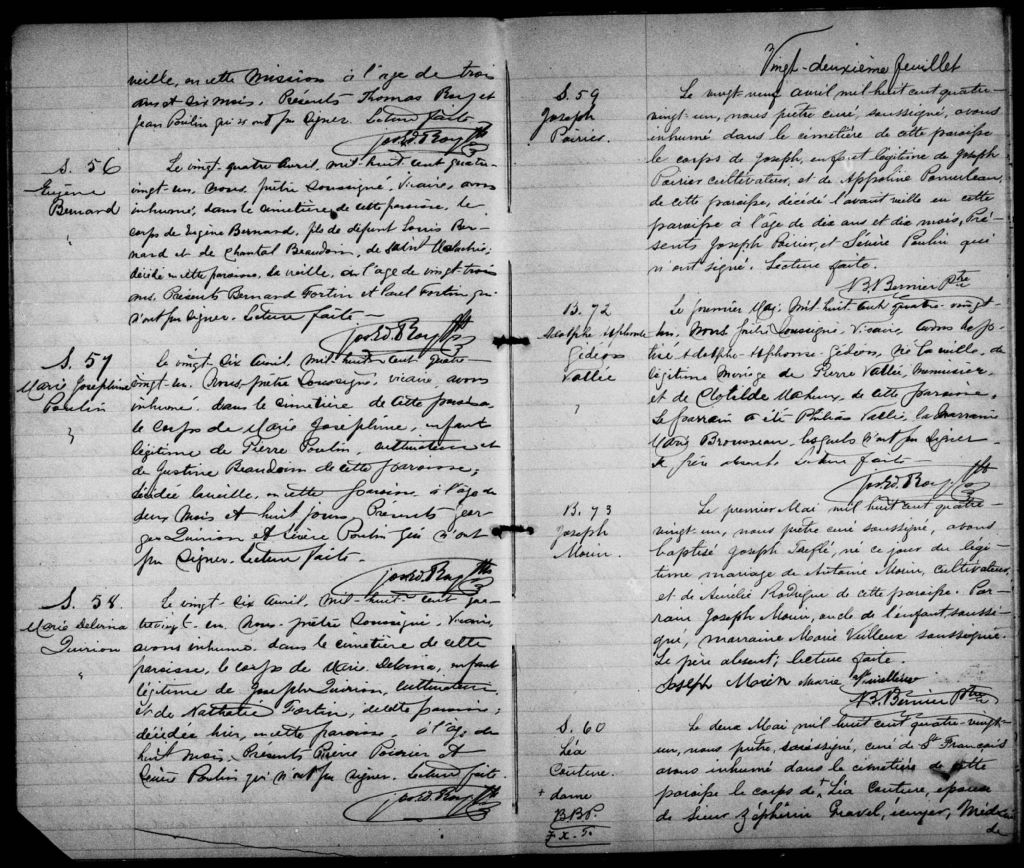 veille, en cette mission à l'age de trois
ans et six mois. Présents Thomas Roy et
Jean Poulin qui n'ont pu signer. Lecture faite
Jos. Ed. Roy Ptre
S. 56
Eugène
Bernard
Le vingt quatre Avril, mil-huit-cent quatre
vingt-un, nous prêtre soussigné, Vicaire, avons
inhumé, dans le cimetière de cette paroisse, le
corps de Eugène Bernard, fils de défunt Louis Ber-
nard et de Chantal Beaudoin, de Saint Malachie,
décédé en cette paroisse, la veille, à l'age de vingt-trois
ans. Présents Bernard Fortin et Paul Fortin qui
n'ont pu signer. Lecture faite -
Jos. Ed. Roy Ptre
S. 57
Marie Joséphine
Poulin
Le vingt-six Avril, mil-huit-cent quatre-
vingt-un. Nous prêtre soussigné, vicaire, avons
inhumé, dans le cimetière de cette paroisse,
le corps de Marie Joséphine, enfant
légitime de Pierre Poulin, cultivateur et
de Justine Beaudoin de cette paroisse,
décédée la veille, en cette paroisse à l'âge de
deux mois et huit jours. Présents Geor-
ges Quirion et Sévère Poulin qui n'ont
pu signer. Lecture faite -
Jos. Ed. Roy Ptre
S. 58.
Marie Delvina
Quirion
Le vingt-six Avril, mil-huit-cent qua-
trevingt-un. Nous prêtre soussigné, Vicaire,
avons inhumé dans le cimetière de cette
paroisse, le corps de Marie Delvina, enfant
légitime de Joseph Quirion, cultivateur,
et de Nathalie Fortin, de cette paroisse,
décédée hier, en cette paroisse, à l'âge de
huit mois. Présents Pierre Poirier et
Sévère Poulin qui n'ont pu signer. Lecture faite.
Jos. Ed. Roy Ptre
Vingt-deuxième feuillet
S. 59
Joseph
Poirier.
Le vingt neuf avril mil huit cent quatre-
vingt-un, nous prêtre curé, soussigné, avons
inhumé dans le cimetière de cette paroisse
le corps de Joseph, enfant légitime de Joseph
Poirier cultivateur, et de Appoline Pomerleau,
de cette paroisse, décédé l'avant veille en cette
paroisse à l'âge de dix ans et dix mois. Pré-
sents Joseph Poirier, et Sévère Poulin qui
n'ont signé. Lecture faite.
N. B. Bernier Ptre
B. 72
Adolphe Alphonse
Gédéon
Vallée
Le premier Mai, mil huit cent quatre-vingt-
un. Nous prêtre soussigné, Vicaire, avons bap-
tisé Adolphe-Alphonse-Gédéon, né la veille, du
légitime mariage de Pierre Vallée, menuisier,
et de Clotilde Maheux, de cette paroisse.
Le parrain a été Philéas Vallée, la marraine
Marie Brousseau, lesquels n'ont pu signer
le père absent. Lecture faite -
Jos. Ed. Roy Ptre
B. 73
Joseph
Morin.
Le premier Mai mil huit cent quatre-
vingt-un, nous prêtre curé soussigné, avons
baptisé Joseph né ce jour du légi-
time mariage de Antoine Morin, cultivateur,
et de Aurélie Rodrigue de cette paroisse. Par-
rain Joseph Morin, oncle de l'enfant, soussi-
gné, marraine Marie Veilleux soussignée.
Le père absent; lecture faite.
Joseph Morin Marie Veilleux
N. B. Bernier Ptre
S. 60
Léa
Couture.
+ dame
Le deux Mai mil huit cent quatre-vingt-
un, nous prêtre, soussigné, curé de St François
avons inhumé dans le cimetière de cette
paroisse le corps de + Léa Couture, épouse
de Sieur Zéphirin Gravel, écuyer, Médecin
de